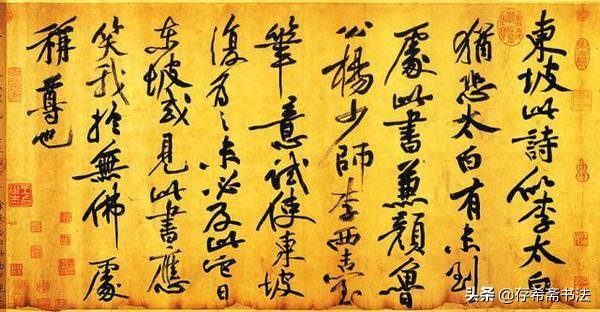 東坡此詩似李太白
猶恐太白有未到
處此書兼顏魯
公楊少師李西臺
筆意試使東坡
復為之未必及此它日
東坡或見此書應
笑我於無佛處
稱尊也
头条 @存希斋书法